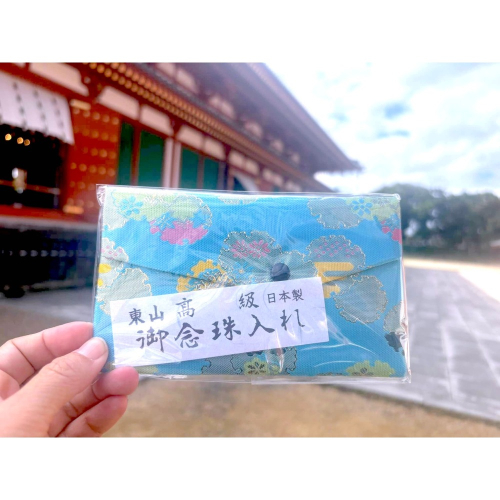 東山 高級 日本製
御念珠入れ